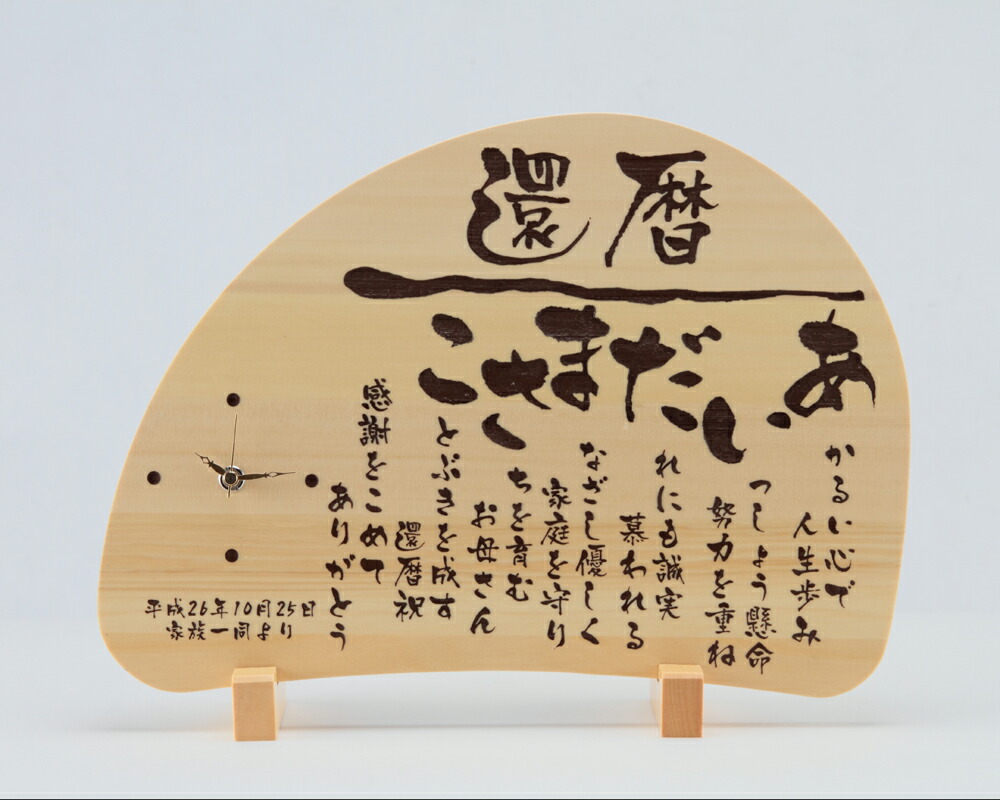 還暦
あかるい心で
人生歩み
いっしょう懸命
努力を重ね
だれにも誠実
慕われる
まなざし優しく
家庭を守り
さちを育む
お母さん
ことぶきを成す
還暦祝
感謝をこめて
ありがとう
平成26年10月25日
家族一同より